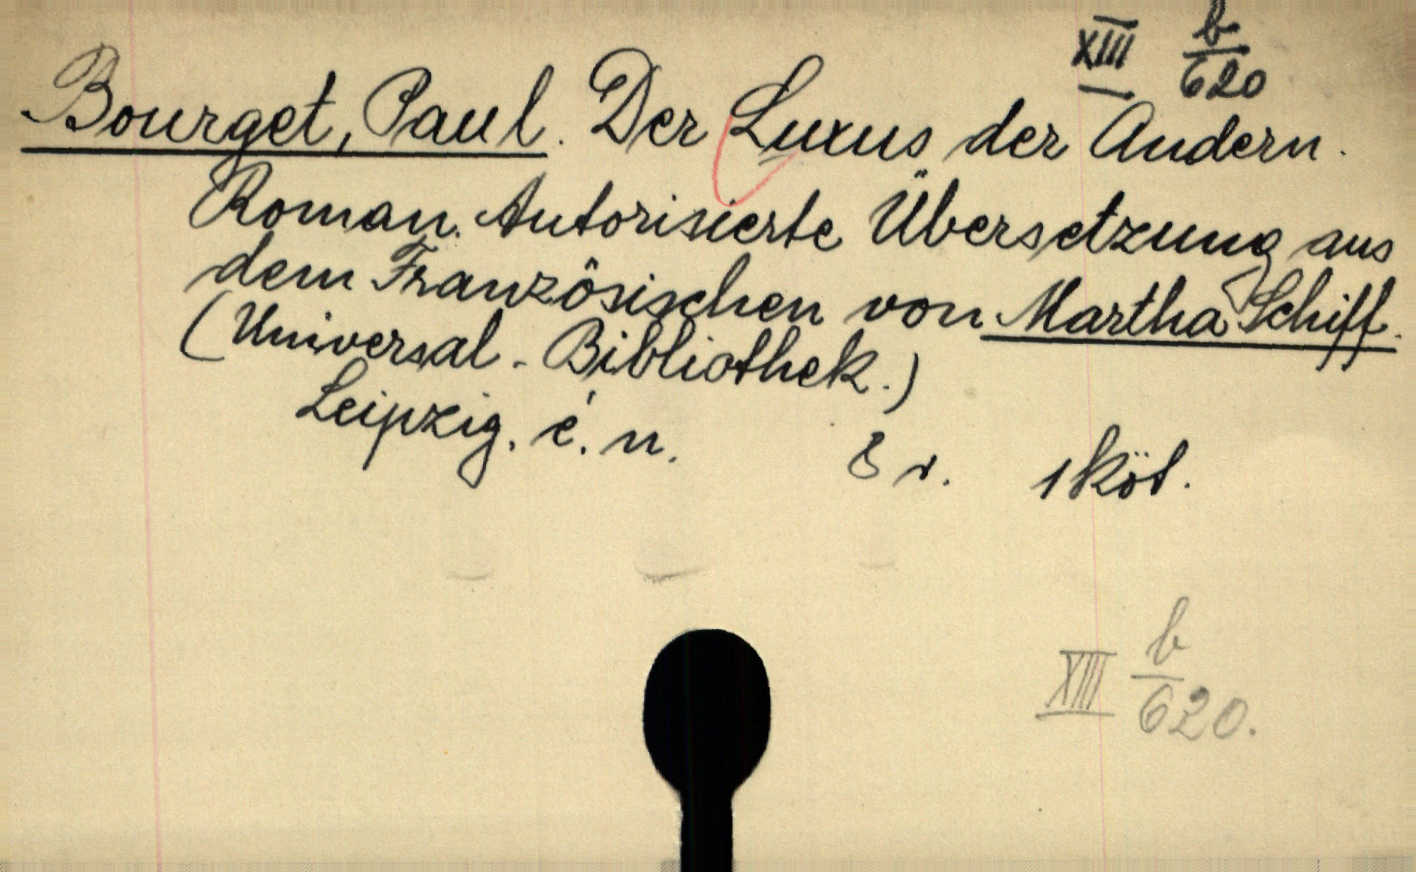 XIII b/620
Bourget, Paul. Der Luxus der Andern.
Roman. Autorisierte Übersetzung aus
dem Französischen von Martha Schiff.
(Universal-Bibliothek.)
Leipzig. é. n. 8 r. 1 köt.
XIII b/620.